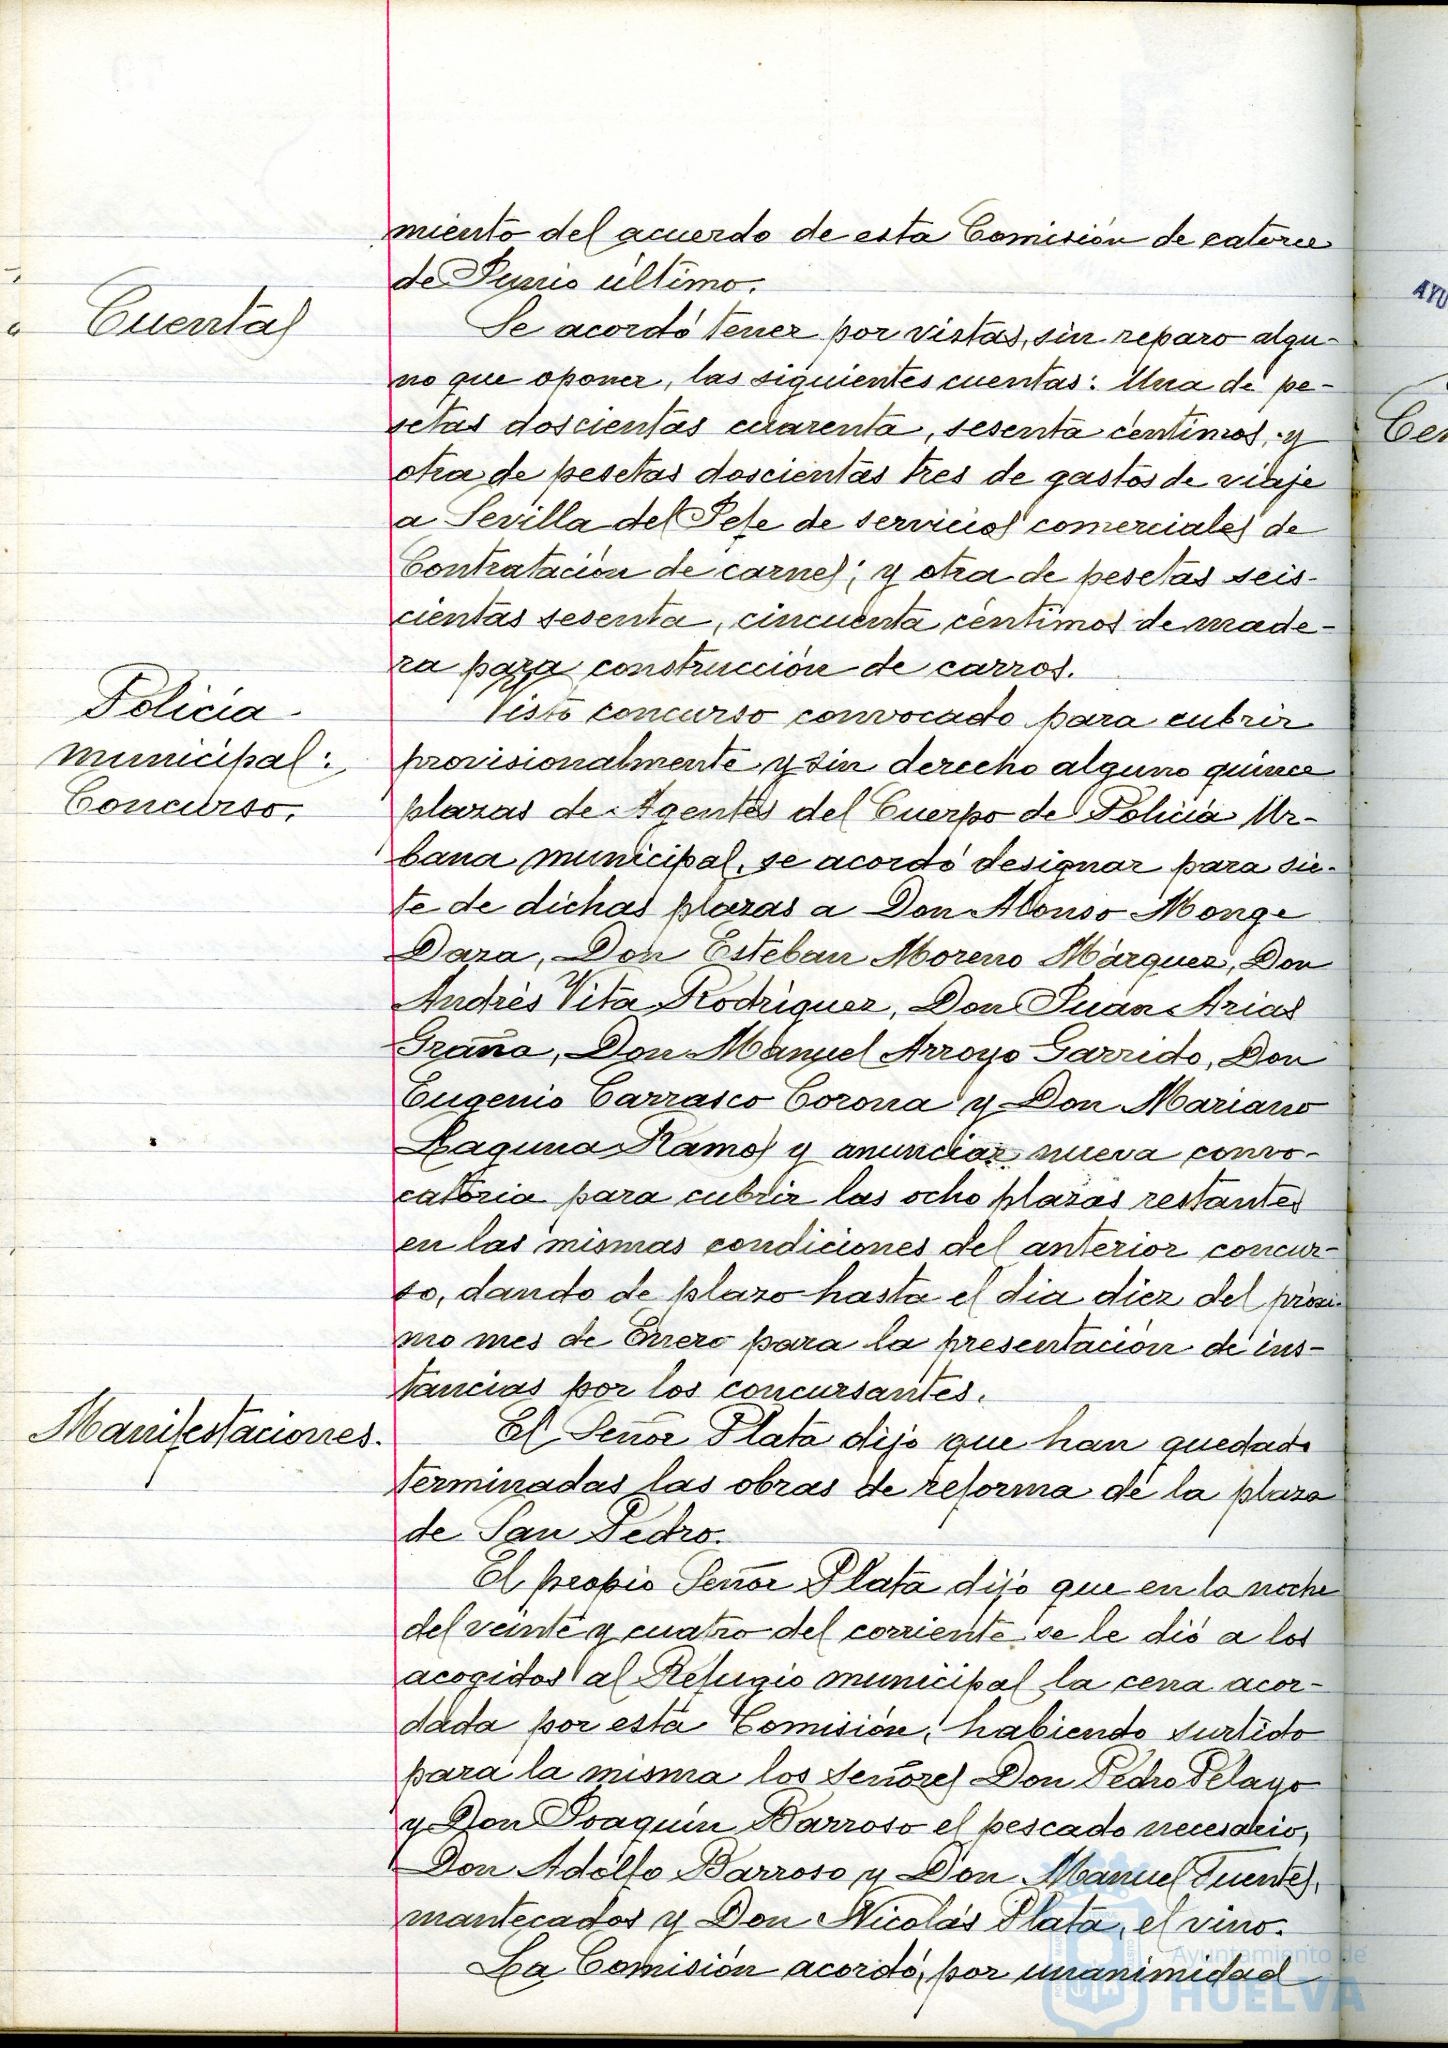 miento del acuerdo de esta Comisión de catorce
de Junio último.
Cuentas
Se acordó tener por vistas, sin reparo algu-
no que oponer, las siguientes cuentas: Una de pe-
setas doscientas cuarenta, sesenta céntimos, y
otra de pesetas doscientas tres de gastos de viaje
a Sevilla del Jefe de servicios comerciales de
Contratación de carnes; y otra de pesetas seis-
cientas sesenta, cincuenta céntimos de made-
ra para construcción de carros.
Policía
municipal:
Concurso.
Visto concurso convocado para cubrir
provisionalmente y sin derecho alguno quince
plazas de Agentes del Cuerpo de Policía Ur-
bana municipal, se acordó designar para sie-
te de dichas plazas a Don Alonso Monge
Daza, Don Esteban Moreno Márquez, Don
Andrés Vita Rodríguez, Don Juan Arias
Graña, Don Manuel Arroyo Garrido, Don
Eugenio Carrasco Corona y Don Mariano
Laguna Ramos y anunciar nueva convo-
catoria para cubrir las ocho plazas restantes
en las mismas condiciones del anterior concur-
so, dando de plazo hasta el dia diez del próxi-
mo mes de Enero para la presentación de ins-
tancias por los concursantes.
Manifestaciones.
El Señor Plata dijo que han quedado
terminadas las obras de reforma de la plaza
de San Pedro.
El propio Señor Plata dijo que en la noche
del veinte y cuatro del corriente se le dió a los
acogidos al Refugio municipal la cena acor-
dada por esta Comisión, habiendo surtido
para la misma los Señores Don Pedro Pelayo
y Don Joaquín Barroso el pescado necesario,
Don Adolfo Barroso y Don Manuel Fuentes,
mantecados y Don Nicolás Plata, el vino.
La Comisión acordó, por unanimidad
Ayuntamiento de
HUELVA